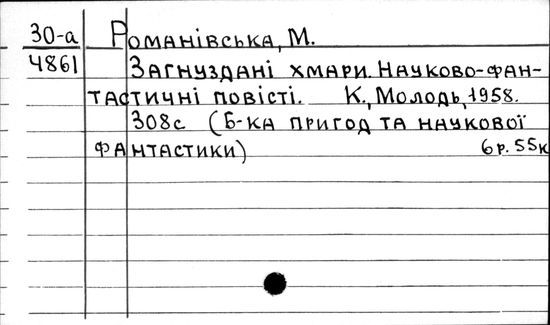 30-а Романівська, М.
4861 Загнуздані хмари. Науково-фан-
тастичні повісті. К., Молодь, 1958.
308с (Б-ка пригод та наукової
фантастики) 6р. 55к